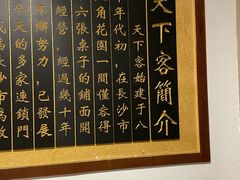 天下客簡介
天下客始建于八
十年代初，在長沙市
角花園一間僅容得
六張桌子的鋪面開
經營，經過幾十年
不懈努力，已發展
今天的多家連鎖門